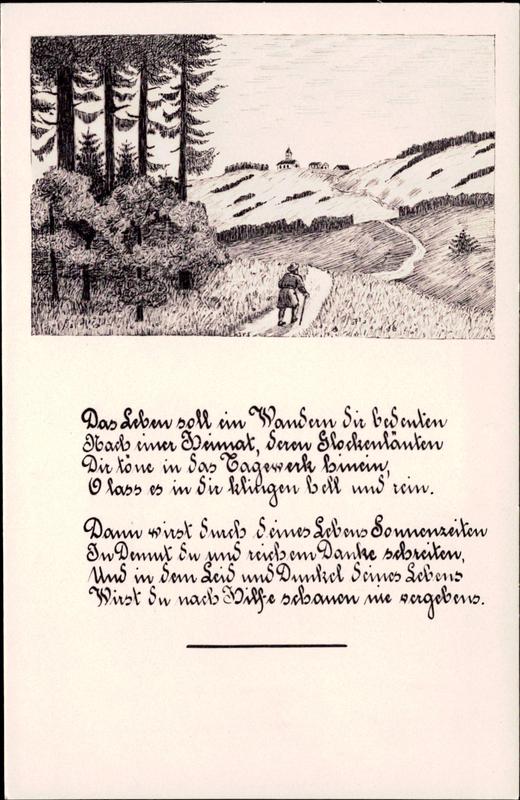 Das Leben soll ein Wandern dir bedeuten
Nach einer Heimat, deren Glockenläuten
Dir töne in das Tagewerk hinein,
O lass es in dir klingen hell und rein.
Dann wirst durch deines Lebens Sonnenzeiten
In Demut du und reichem Danke schreiten,
Und in dem Leid und Dunkel deines Lebens
Wirst du nach Hilfe schauen nie vergebens.